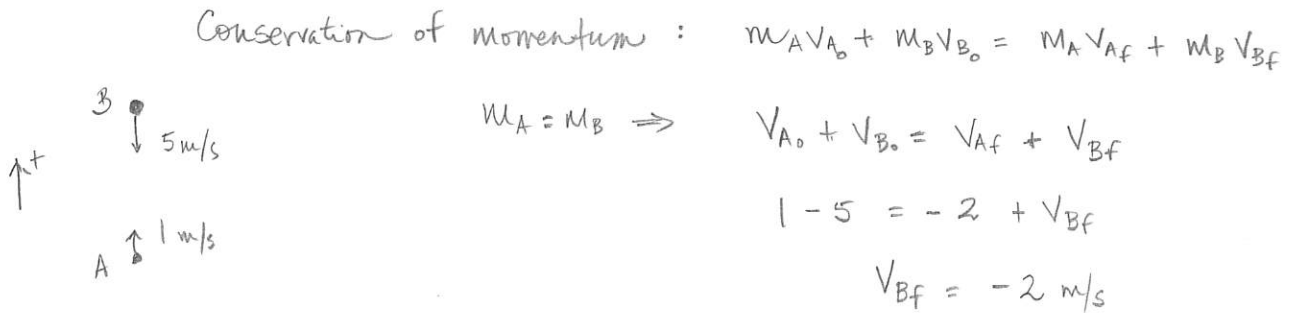 Conservation of momentum : m_A V_A₀ + m_B V_B₀ = m_A V_Af + m_B V_Bf
B
5 m/s
m_A = m_B ⇒ V_A₀ + V_B₀ = V_Af + V_Bf
↑+
1 - 5 = - 2 + V_Bf
A
1 m/s
V_Bf = - 2 m/s